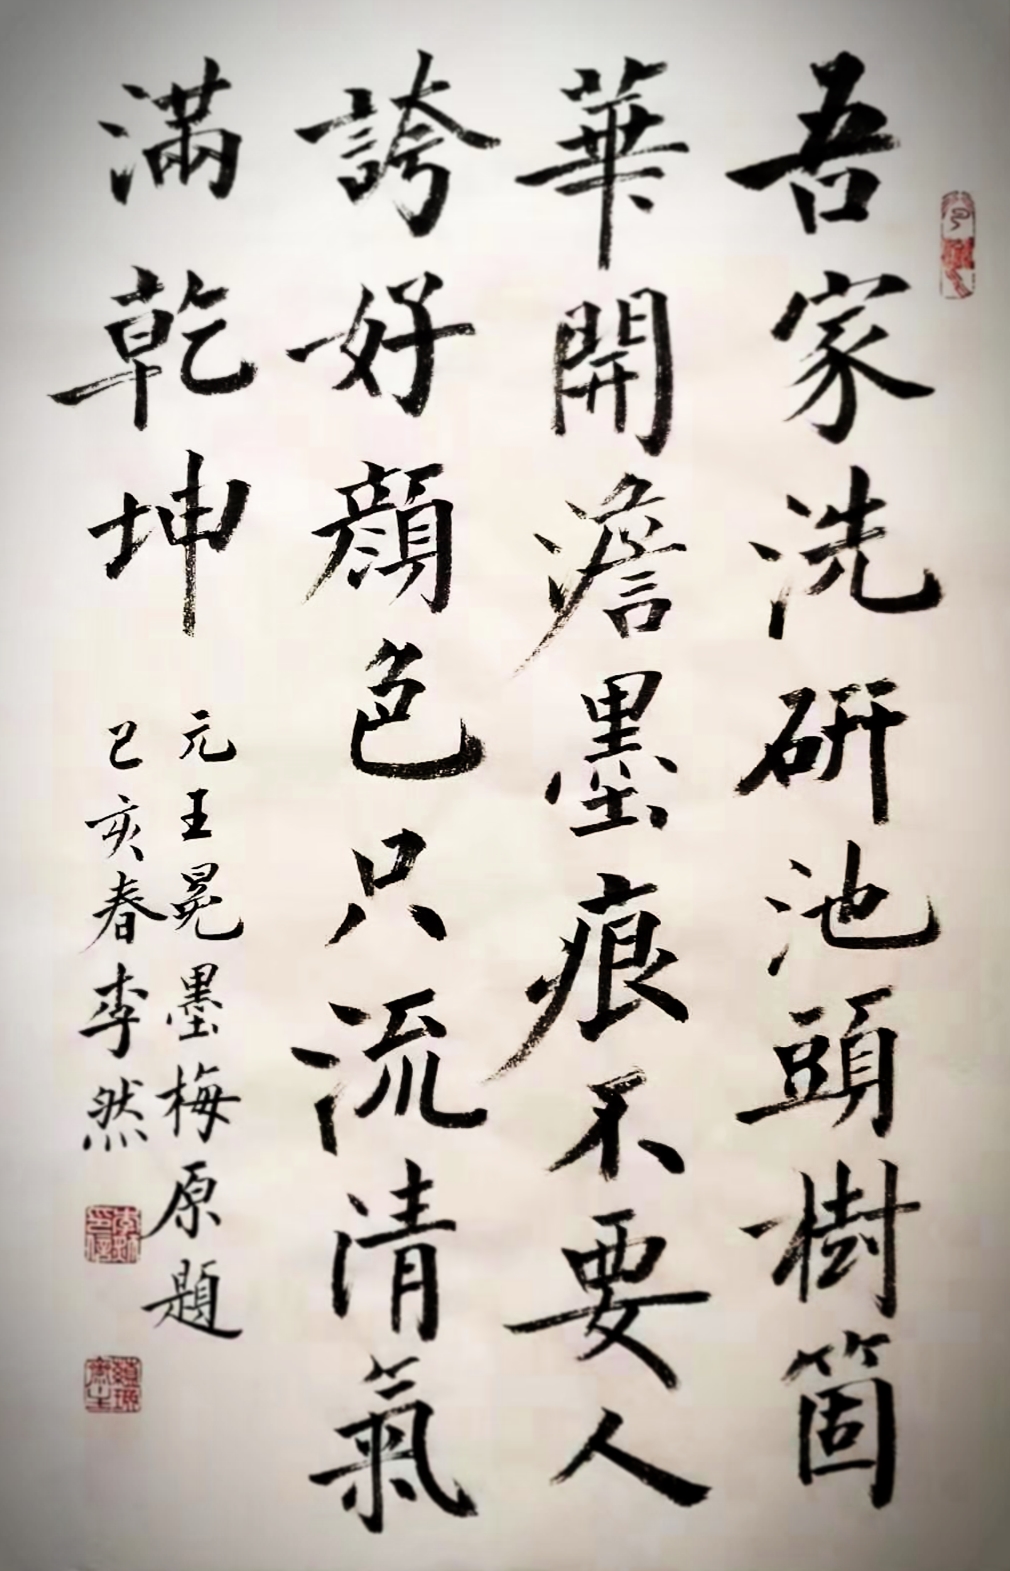 吾家洗研池頭樹箇
華開澹墨痕不要人
誇好顔色只流清氣
滿乾坤
元王冕墨梅原題
己亥春李然